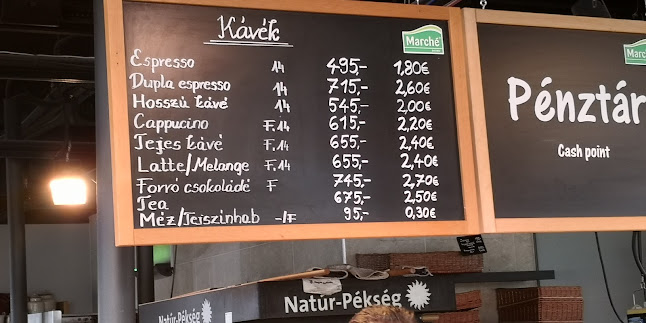 Kávék
Marché
Espresso 14 495,- 1,80€
Dupla espresso 14 715,- 2,60€
Hosszú kávé 14 545,- 2,00€
Cappucino F,14 615,- 2,20€
Tejes kávé F,14 655,- 2,40€
Latte/Melange F,14 655,- 2,40€
Forró csokoládé F 745,- 2,70€
Tea 675,- 2,50€
Méz/Tejszínhab -/F 95,- 0,30€
Marché
Pénztár
Cash point
Natúr-Pékség
Natúr-Pékség